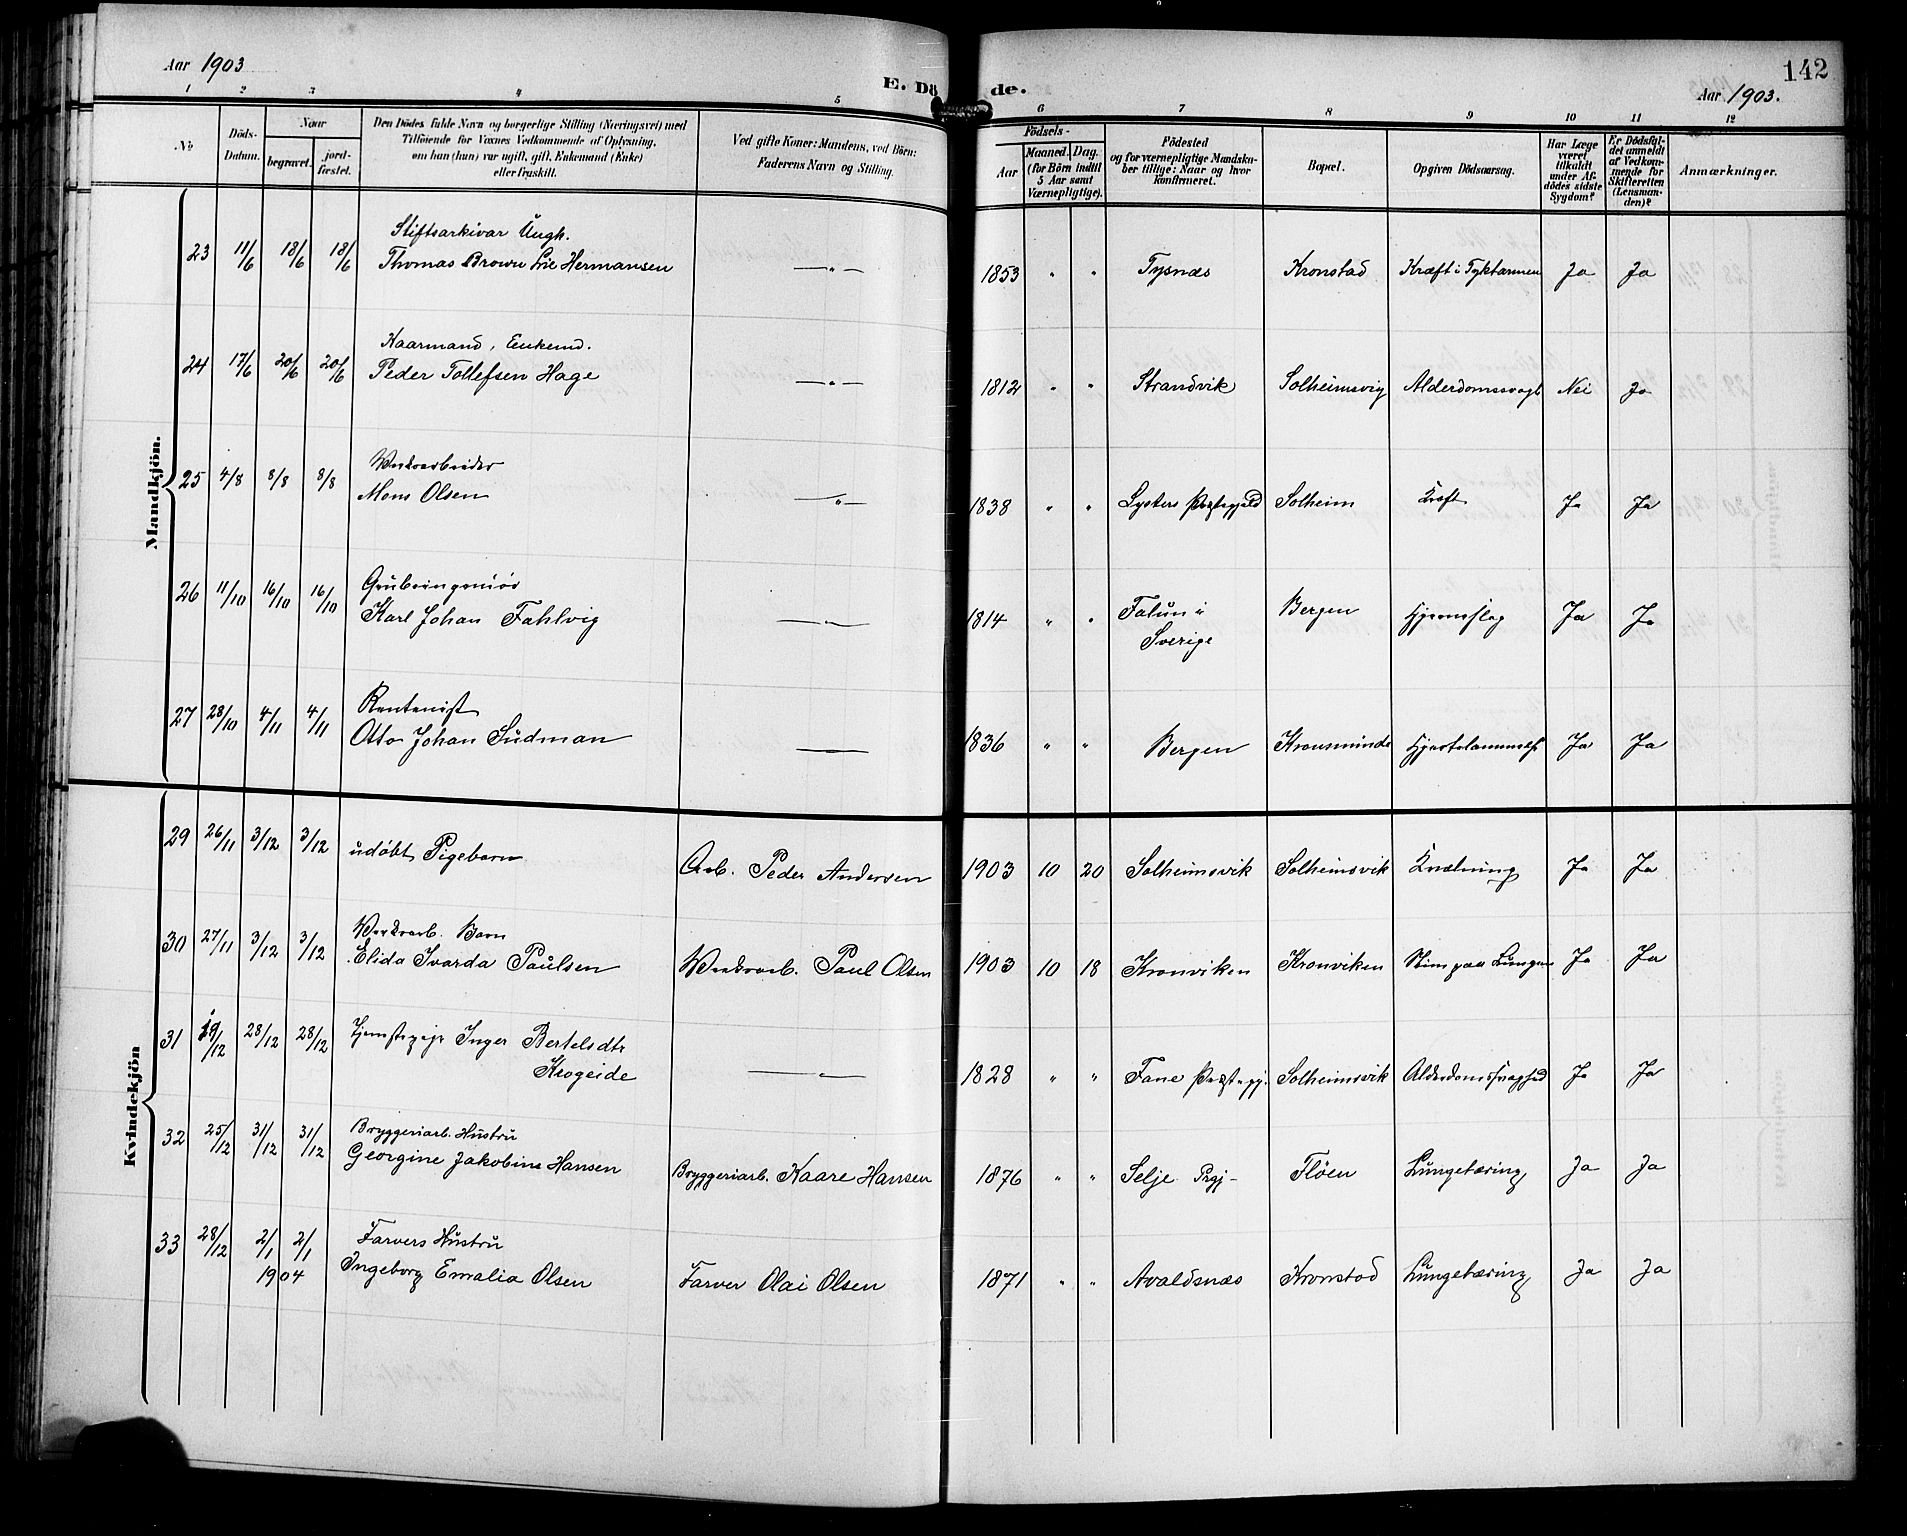 Aar 1903
E. Dö de.
142
Aar 1903.
1 2 3 4 5 6 7 8 9 10 11 12
No
Döds-Datum.
Naar
begravet.
jord-fæstet.
Den Dödes fulde Navn og borgerlige Stilling (Næringsvei) med
Tilföiende for Voxnes Vedkommende af Oplysning,
om han (hun) var ugift, gift, Enkemand (Enke)
eller fraskilt.
Ved gifte Koner: Mandens, ved Börn:
Faderens Navn og Stilling.
Födsels-
Aar
Maaned. Dag.
(for Börn indtil
5 Aar samt
Værnepligtige).
Födested
og for værnepligtige Mandska-
ber tillige: Naar og hvor
konfirmeret.
Bopæl.
Opgiven Dödsaarsag.
Har Læge
været
tilkaldt
under Af-
dödes sidste
Sygdom?
Er Dödsfal-
det anmeldt
af Vedkom-
mende for
Skifteretten
(Lensman-
den)?
Anmærkninger.
Mandkjön.
Stiftsarkivar Ungk.
23 11/6 18/6 18/6 Thomas Brown Lie Hermansen — " — 1853 " " Tysnæs Kronstad Kræft i Tyktarmen Ja Ja
Kaarmand, Enkemd.
24 17/6 20/6 20/6 Peder Tollefsen Hage — " — 1812 " " Strandvik Solheimsvig Alderdomssvagh Nei Ja
Værkarbeider
25 4/8 8/8 8/8 Mons Olsen — " — 1838 " " Lysters Præstegjeld Solheim Kræft Ja Ja
Grubeingeniør
26 11/10 16/10 16/10 Karl Johan Fahlvig — " — 1814 " " Falun i Bergen Hjerneslag Ja Ja
Sverige
Rentenist
27 28/10 4/11 4/11 Otto Johan Sudman — 1836 " " Bergen Kronsminde Hjertelammelse Ja Ja
Kvindekjön
29 26/11 3/12 3/12 udöbt Pigebarn Arb. Peder Andersen 1903 10 20 Solheimsvik Solheimsvik Kvælning Ja Ja
Værkarb. Barn
30 27/11 3/12 3/12 Elida Ivarda Paulsen Værkarb. Paul Olsen 1903 10 18 Kronviken Kronviken Slim paa Lungene Ja Ja
31 19/12 28/12 28/12 Tjenstepige Inger Bertelsdtr — " — 1828 " " Fane Præstegj. Solheimsvik Alderdomssvaghed Ja Ja
Krogeide
Bryggeriarb. Hustru
32 25/12 31/12 31/12 Georgine Jakobine Hansen Bryggeriarb. Kaare Hansen 1876 " " Selje Prgj- Flöen Lungetæring Ja Ja
Farvers Hustru
33 28/12 2/1 2/1 Ingeborg Emalia Olsen Farver Olai Olsen 1871 " " Avaldsnæs Kronstad Lungetæring Ja Ja
1904